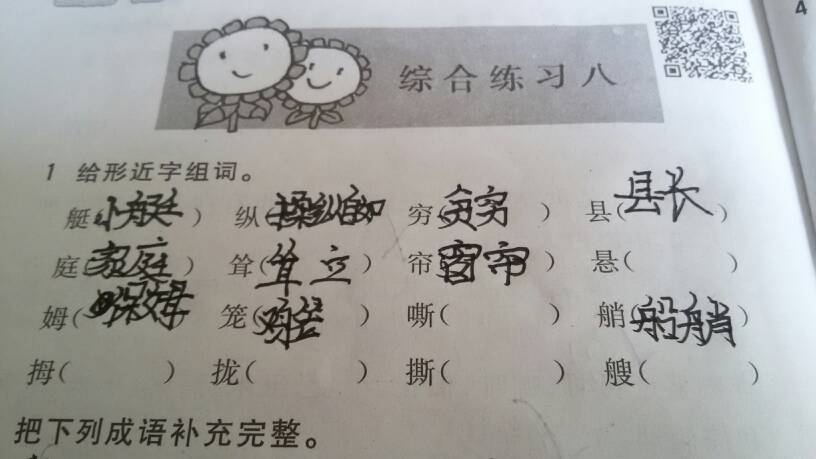 4
综合练习八
1 给形近字组词。
艇(小艇) 纵(操纵自如) 穷(贫穷) 县(县长)
庭(家庭) 耸(耸立) 帘(窗帘) 悬( )
姆(保姆) 笼( ) 嘶( ) 艄(船艄)
拇( ) 拢( ) 撕( ) 艘( )
把下列成语补充完整。